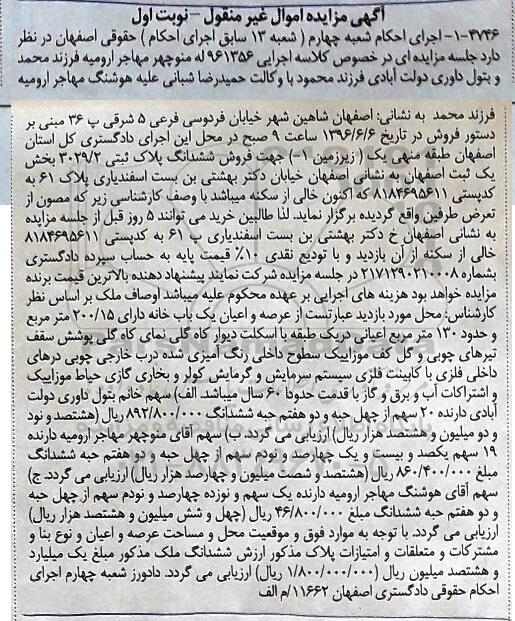 آگهی مزایده اموال غیر منقول - نوبت اول
۱-۴۷۴۶- اجرای احکام شعبه چهارم ( شعبه ۱۳ سابق اجرای احکام ) حقوقی اصفهان در نظر
دارد جلسه مزایده ای در خصوص کلاسه اجرایی ۹۶۱۳۵۶ له منوچهر مهاجر ارومیه فرزند محمد
و بتول داوری دولت آبادی فرزند محمود با وکالت حمیدرضا شبانی علیه هوشنگ مهاجر ارومیه
فرزند محمد به نشانی: اصفهان شاهین شهر خیابان فردوسی فرعی ۵ شرقی پ ۳۶ مبنی بر
دستور فروش در تاریخ ۱۳۹۶/۶/۶ ساعت ۹ صبح در محل این اجرای دادگستری کل استان
اصفهان طبقه منهی یک ( زیرزمین ۱-) جهت فروش ششدانگ پلاک ثبتی ۳۰۲۹/۲ بخش
یک ثبت اصفهان به نشانی اصفهان خیابان دکتر بهشتی بن بست اسفندیاری پلاک ۶۱ به
کدپستی ۸۱۸۴۶۹۵۶۱۱ که اکنون خالی از سکنه میباشد با وصف کارشناسی زیر که مصون از
تعرض طرفین واقع گردیده برگزار نماید. لذا طالبین خرید می توانند ۵ روز قبل از جلسه مزایده
به نشانی اصفهان خ دکتر بهشتی بن بست اسفندیاری پ ۶۱ به کدپستی ۸۱۸۴۶۹۵۶۱۱
خالی از سکنه از آن بازدید و با تودیع نقدی ۱۰٪ قیمت پایه به حساب سپرده دادگستری
بشماره ۲۱۷۱۲۹۰۲۱۰۰۰۸ در جلسه مزایده شرکت نمایند پیشنهاد دهنده بالاترین قیمت برنده
مزایده خواهد بود هزینه های اجرایی بر عهده محکوم علیه میباشد اوصاف ملک بر اساس نظر
کارشناس: محل مورد بازدید عبارتست از عرصه و اعیان یک باب خانه دارای ۲۰۰/۱۵ متر مربع
و حدود ۱۳۰ متر مربع اعیانی دریک طبقه با اسکلت دیوار کاه گلی نمای کاه گلی پوشش سقف
تیرهای چوبی و گل کف موزاییک سطوح داخلی رنگ آمیزی شده درب خارجی چوبی درهای
داخلی فلزی با کابینت فلزی سیستم سرمایش و گرمایش کولر و بخاری گازی حیاط موزاییک
و اشتراکات آب و برق و گاز با قدمت حدودا ۶۰ سال میباشد. الف) سهم خانم بتول داوری دولت
آبادی دارنده ۲۰ سهم از چهل حبه و دو هفتم حبه ششدانگ ۸۹۲/۸۰۰/۰۰۰ ریال (هشتصد و نود
و دو میلیون و هشتصد هزار ریال) ارزیابی می گردد. ب) سهم آقای منوچهر مهاجر ارومیه دارنده
۱۹ سهم یکصد و بیست و یک چهارصد و نودم سهم از چهل حبه و دو هفتم حبه ششدانگ
مبلغ ۸۶۰/۴۰۰/۰۰۰ ریال (هشتصد و شصت میلیون و چهارصد هزار ریال) ارزیابی می گردد. ج)
سهم آقای هوشنگ مهاجر ارومیه دارنده یک سهم و نوزده چهارصد و نودم سهم از چهل حبه
و دو هفتم حبه ششدانگ مبلغ ۴۶/۸۰۰/۰۰۰ ریال (چهل و شش میلیون و هشتصد هزار ریال)
ارزیابی می گردد. با توجه به موارد فوق و موقعیت محل و مساحت عرصه و اعیان و نوع بنا و
مشترکات و متعلقات و امتیازات پلاک مذکور ارزش ششدانگ ملک مذکور مبلغ یک میلیارد
و هشتصد میلیون ریال (۱/۸۰۰/۰۰۰/۰۰۰ ریال) ارزیابی می گردد. دادورز شعبه چهارم اجرای
احکام حقوقی دادگستری اصفهان ۱۱۶۶۲/م الف